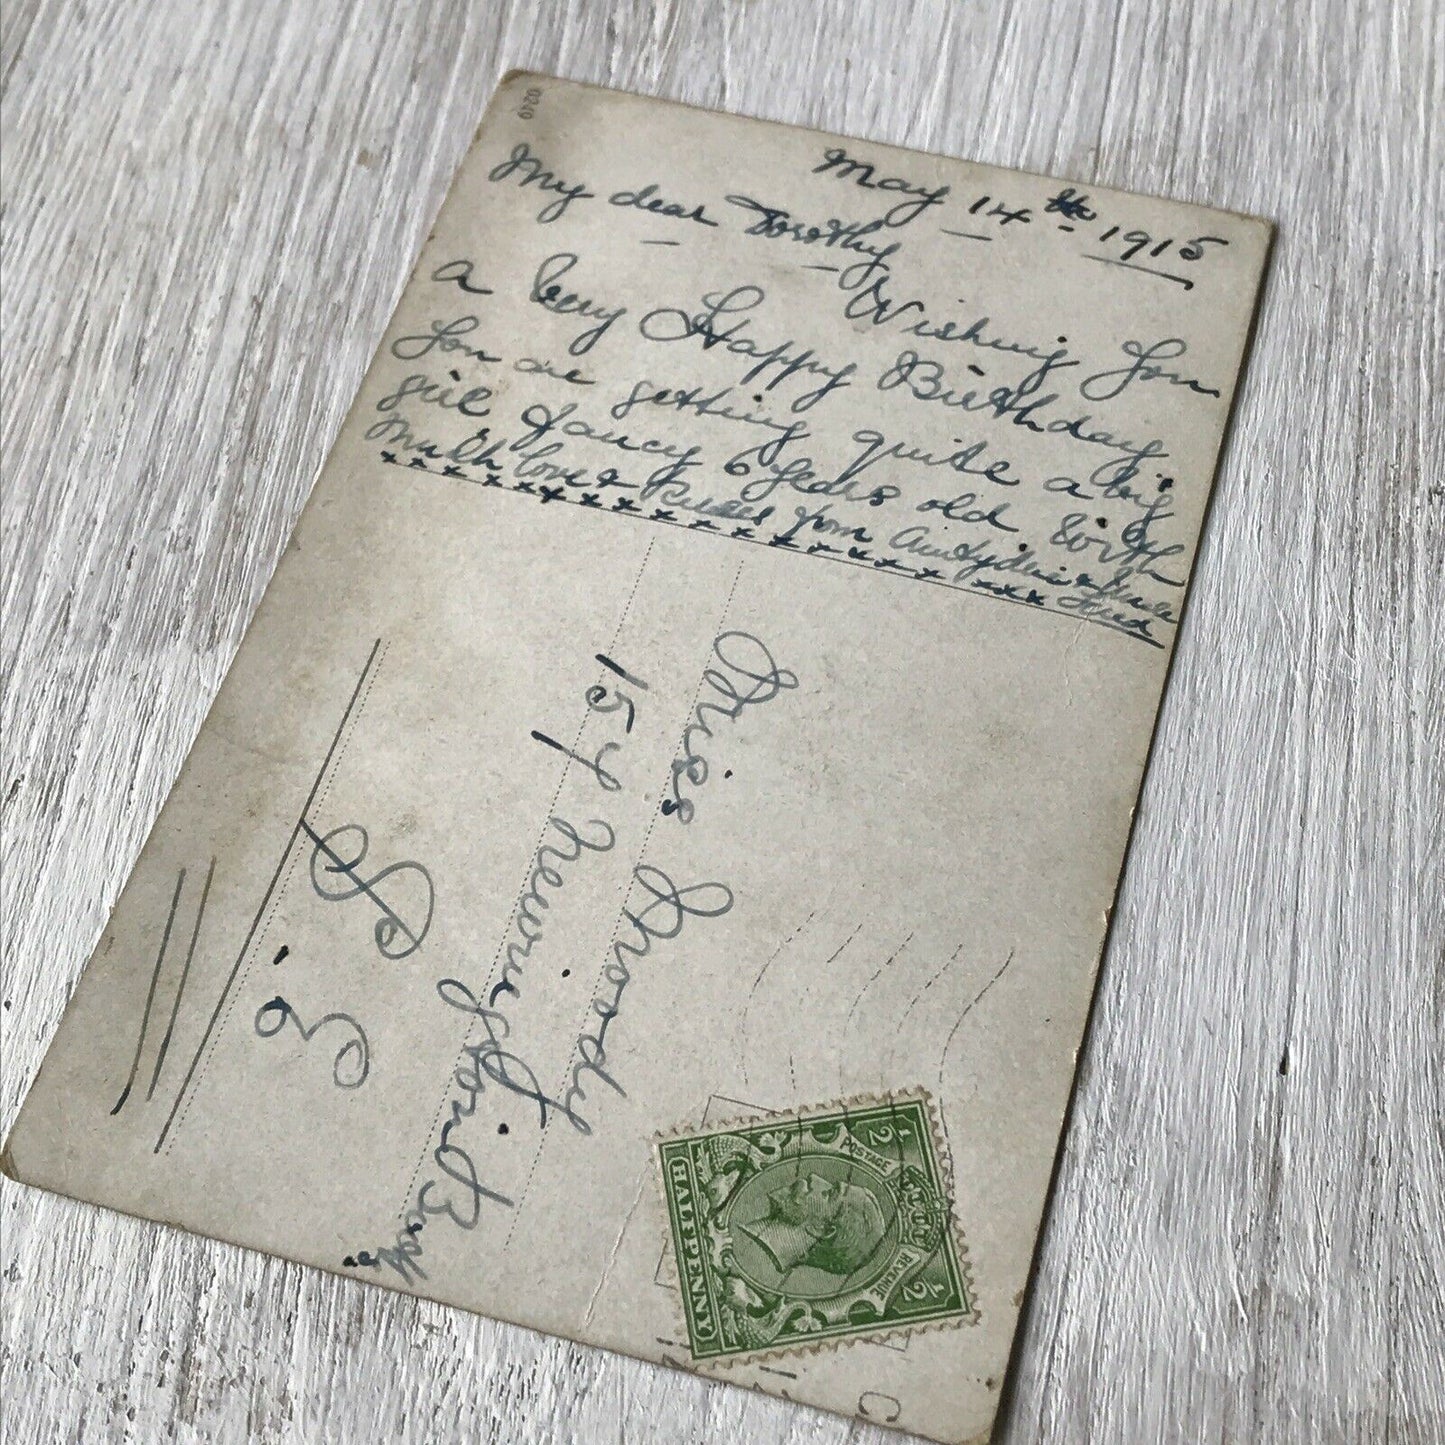 0249
May 14th 1915
My dear Dorothy
Wishing You
a Very Happy Birthday
You are getting quite a big
girl fancy 6 Years old
Much love & Kisses from Aunty & Uncle
Fred
x x x x x x x x x x x x x x x x x x x
Miss Moody
157 Newington Butts
S. E.
POSTAGE
REVENUE
1/2
1/2
HALFPENNY
C